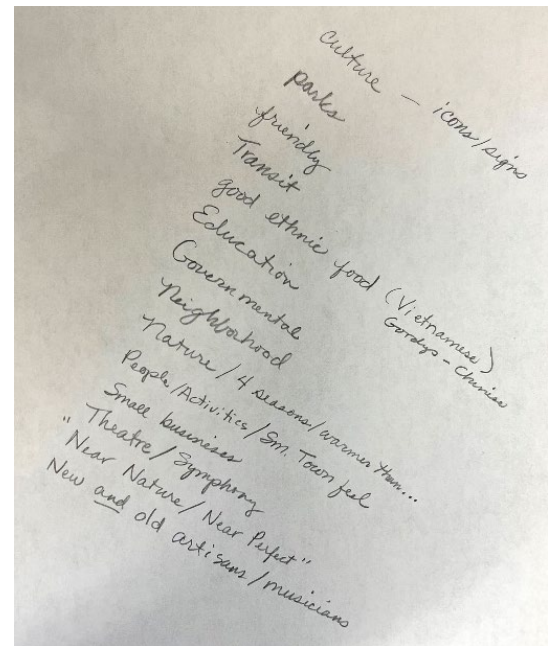 Culture — icons/signs
parks
friendly
Transit
good ethnic food (Vietnamese)
Gordys - Chinese
Education
Governmental
Neighborhood
Nature / 4 seasons/warmer than...
People/Activities/Sm. Town feel
Small businesses
Theatre/Symphony
"Near Nature/Near Perfect"
New and old artisans/musicians